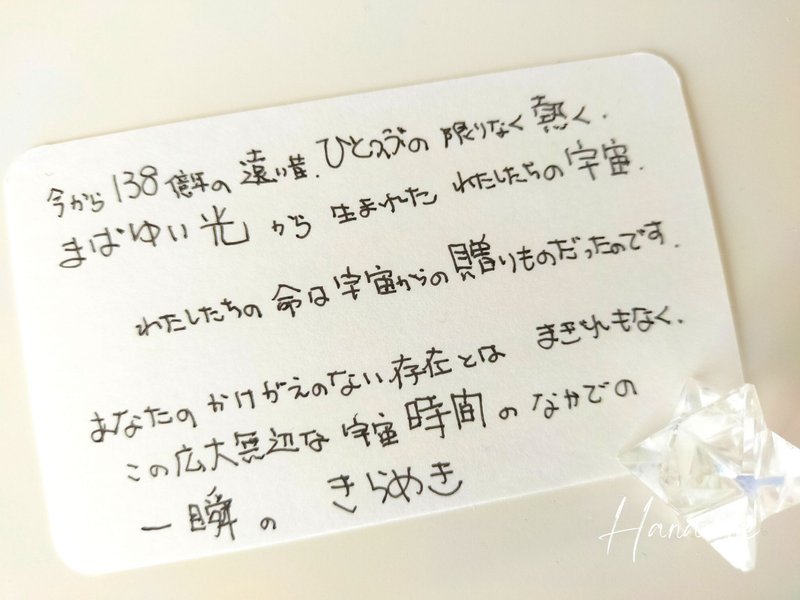 今から138億年の遠い昔.ひとつぶの限りなく熱く.
まばゆい光から生まれたわたしたちの宇宙.
わたしたちの命は宇宙からの贈りものだったのです.
あなたのかけがえのない存在とはまぎれもなく.
この広大無辺な宇宙時間のなかでの
一瞬のきらめき